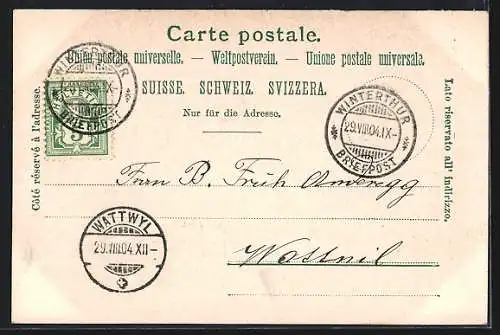 Carte postale.
Union postale universelle. — Weltpostverein. — Unione postale universale.
SUISSE. SCHWEIZ. SVIZZERA.
Nur für die Adresse.
Côté réservé à l'adresse.
Lato riservato all' indirizzo.
WINTERTHUR
BRIEFPOST
5
WINTERTHUR
29.VIII.04.IX-
BRIEFPOST
Frau B. Früh Anderegg
WATTWYL
29.VIII.04.XII-
Wattwil